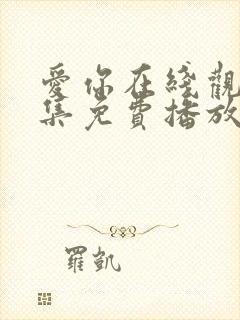 愛你在綫觀
集免費播放
羅凱